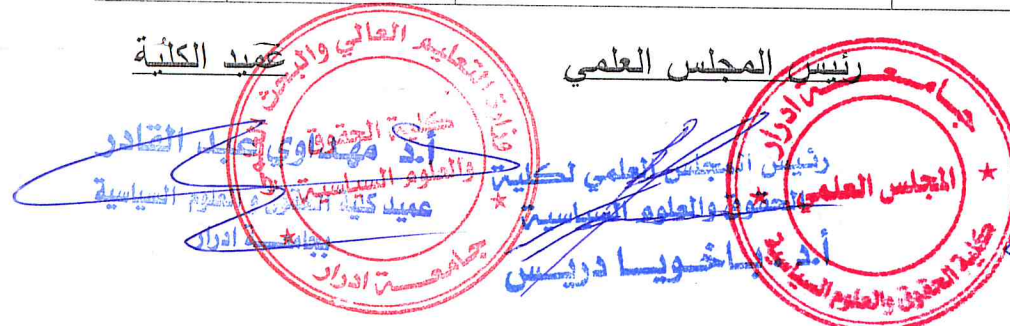 رئيس المجلس العلمي
عميد الكلية
جامعــــة ادرار
المجلس العلمي
كلية الحقوق والعلوم السياسية
رئيس المجلس العلمي لكلية
الحقوق والعلوم السياسية
أ.د. باخويا دريس
وزارة التعليم العالي والبحث العلمي
كلية الحقوق
والعلوم السياسية
جامعة ادرار
أ.د مهداوي عبد القادر
عميد كلية الحقوق والعلوم السياسية
بجامعة ادرار